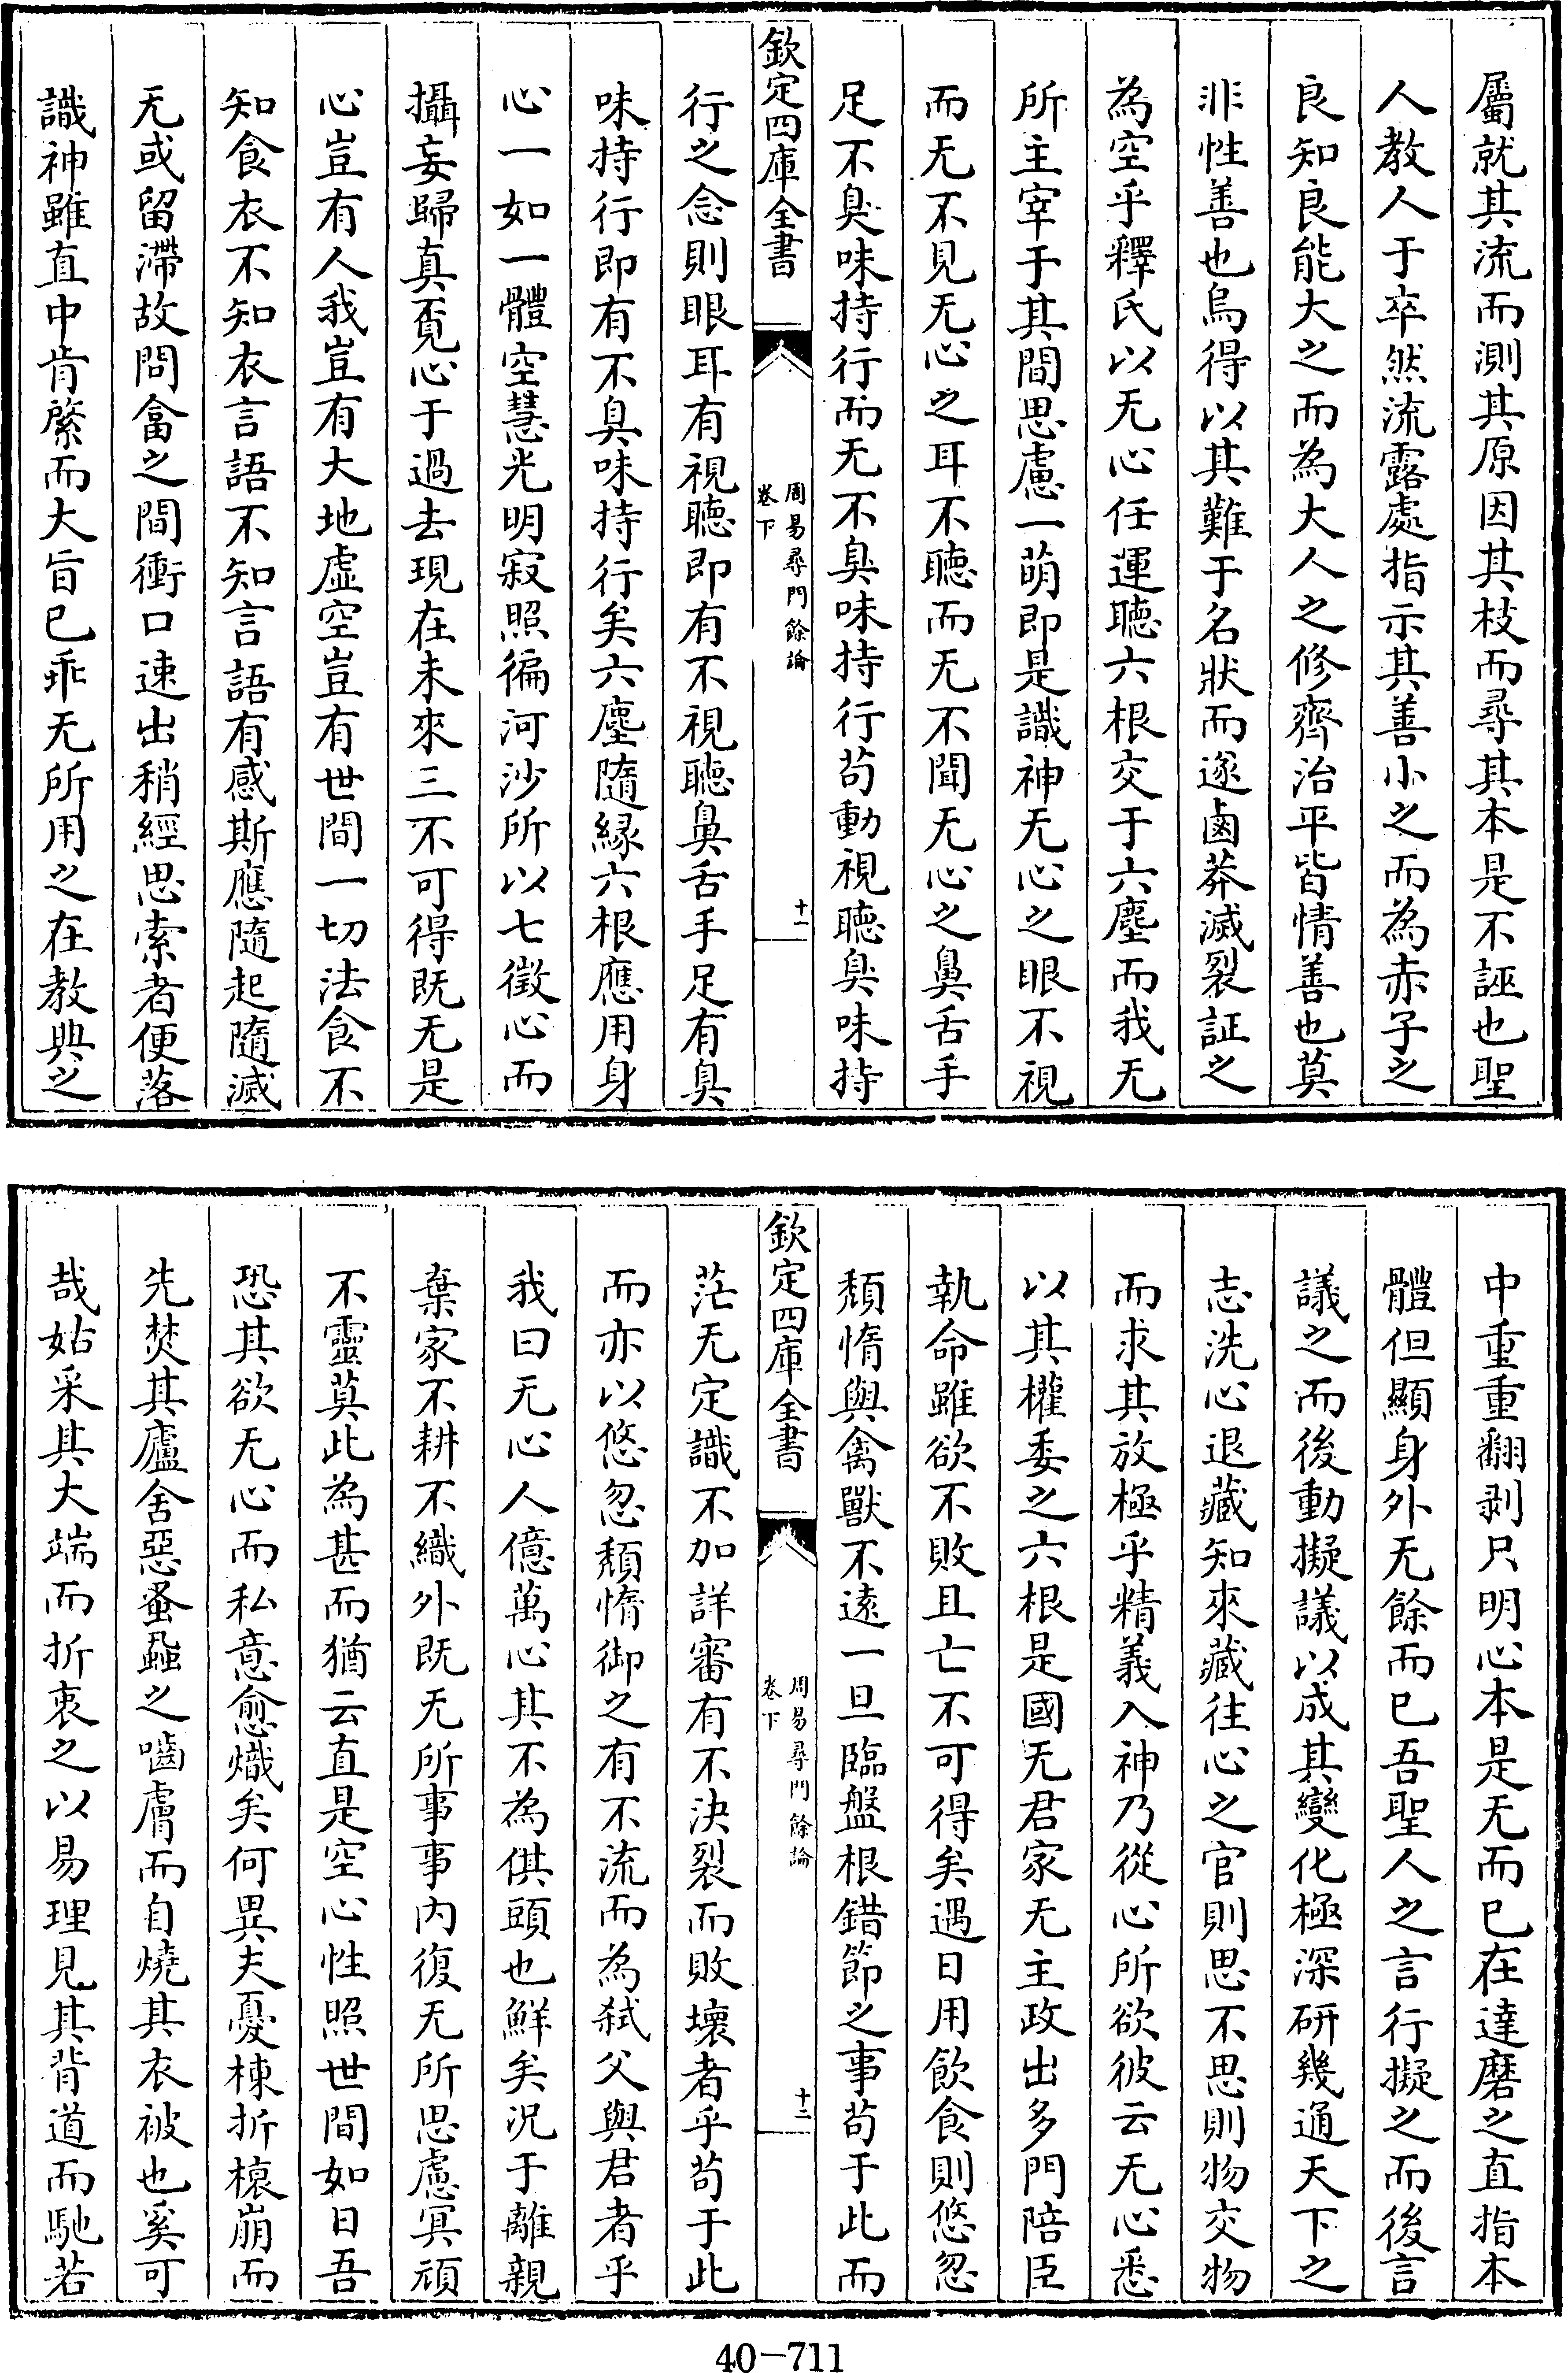 屬就其流而測其原因其枝而尋其本是不誣也聖
人教人于卒然流露處指示其善小之而為赤子之
良知良能大之而為大人之修齊治平皆情善也莫
非性善也烏得以其難于名狀而遂鹵莽滅裂証之
為空乎釋氏以无心任運聽六根交于六塵而我无
所主宰于其間思慮一萌即是識神无心之眼不視
而无不見无心之耳不聽而无不聞无心之鼻舌手
足不臭味持行而无不臭味持行苟動視聽臭味持
欽定四庫全書
周易尋門餘論
卷下
十一
行之念則眼耳有視聽即有不視聽鼻舌手足有臭
味持行即有不臭味持行矣六塵隨緣六根應用身
心一如一體空慧光明寂照徧河沙所以七徵心而
攝妄歸真覔心于過去現在未來三不可得既无是
心豈有人我豈有大地虛空豈有世間一切法食不
知食衣不知衣言語不知言語有感斯應隨起隨滅
无或留滯故問畣之間衝口速出稍經思索者便落
識神雖直中肯綮而大旨已乖无所用之在教典之
中重重翻剥只明心本是无而已在達磨之直指本
體但顯身外无餘而已吾聖人之言行擬之而後言
議之而後動擬議以成其變化極深研幾通天下之
志洗心退藏知來藏往心之官則思不思則物交物
而求其放極乎精義入神乃從心所欲彼云无心悉
以其權委之六根是國无君家无主政出多門陪臣
執命雖欲不敗且亡不可得矣遇日用飲食則悠忽
頹惰與禽獸不遠一旦臨盤根錯節之事苟于此而
欽定四庫全書
周易尋門餘論
卷下
十二
茫无定識不加詳審有不決裂而敗壞者乎苟于此
而亦以悠忽頹惰御之有不流而為弒父與君者乎
我曰无心人億萬心其不為倛頭也鮮矣况于離親
棄家不耕不織外既无所事事内復无所思慮冥頑
不靈莫此為甚而猶云直是空心性照世間如日吾
恐其欲无心而私意愈熾矣何異夫憂棟折榱崩而
先焚其廬舍惡蚤蝨之嚙膚而自燒其衣被也奚可
哉姑采其大端而折衷之以易理見其背道而馳若
40-711